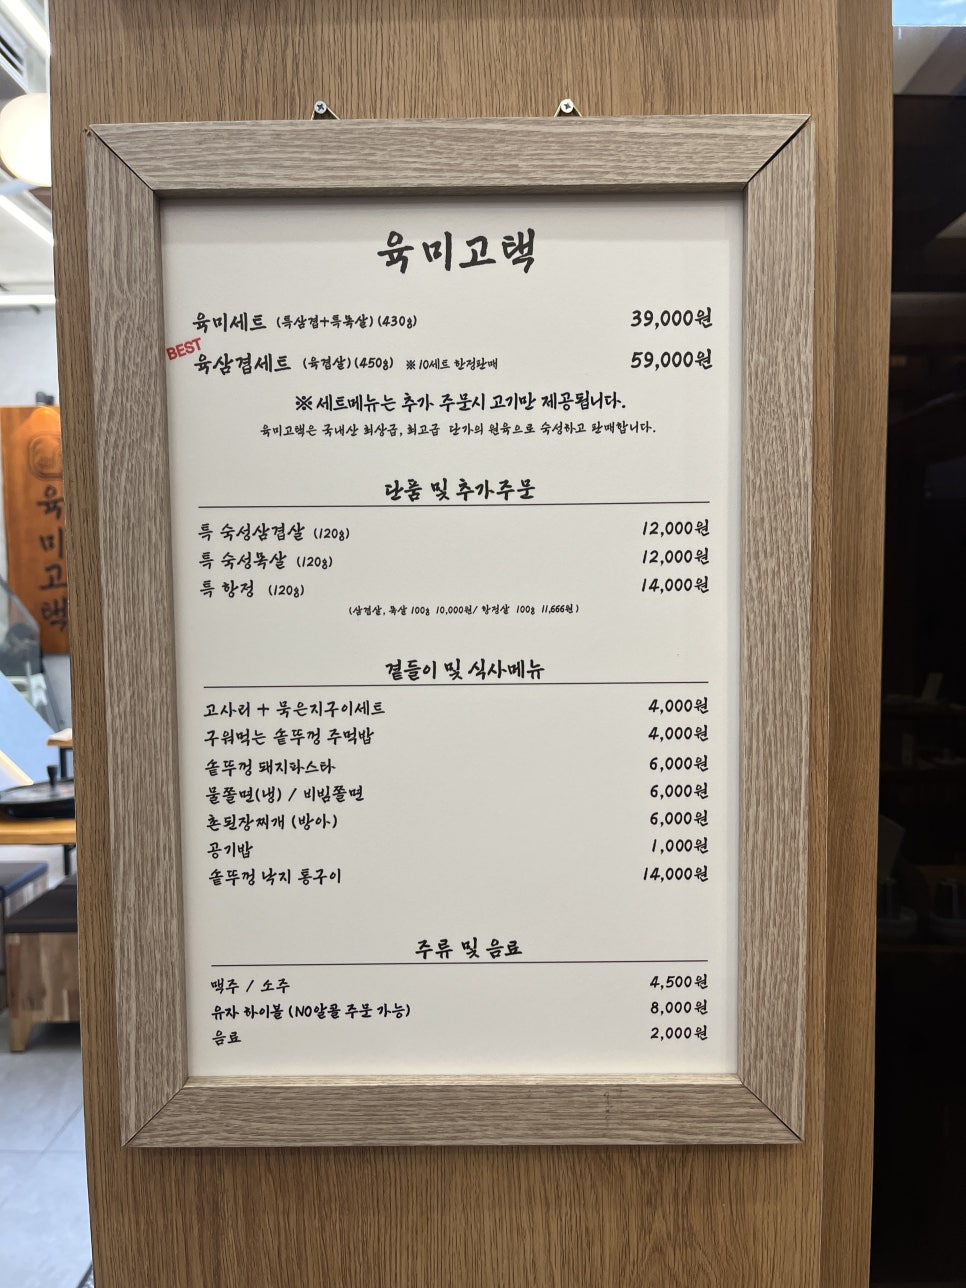 육미고택
육미세트 (특삼겹+특목살)(430g) 39,000원
BEST
육삼겹세트 (육겹살)(450g) ※10세트 한정판매 59,000원
※세트메뉴는 추가 주문시 고기만 제공됩니다.
육미고택은 국내산 최상급, 최고급 단가의 원육으로 숙성하고 판매합니다.
단품 및 추가주문
특 숙성삼겹살 (120g) 12,000원
특 숙성목살 (120g) 12,000원
특 항정 (120g) 14,000원
(삼겹살, 목살 100g 10,000원/ 항정살 100g 11,666원)
곁들이 및 식사메뉴
고사리 + 묵은지구이세트 4,000원
구워먹는 솥뚜껑 주먹밥 4,000원
솥뚜껑 돼지파스타 6,000원
물쫄면(냉) / 비빔쫄면 6,000원
촌된장찌개 (방아) 6,000원
공기밥 1,000원
솥뚜껑 낙지 통구이 14,000원
주류 및 음료
맥주 / 소주 4,500원
유자 하이볼 (NO알콜 주문 가능) 8,000원
음료 2,000원
육미고택